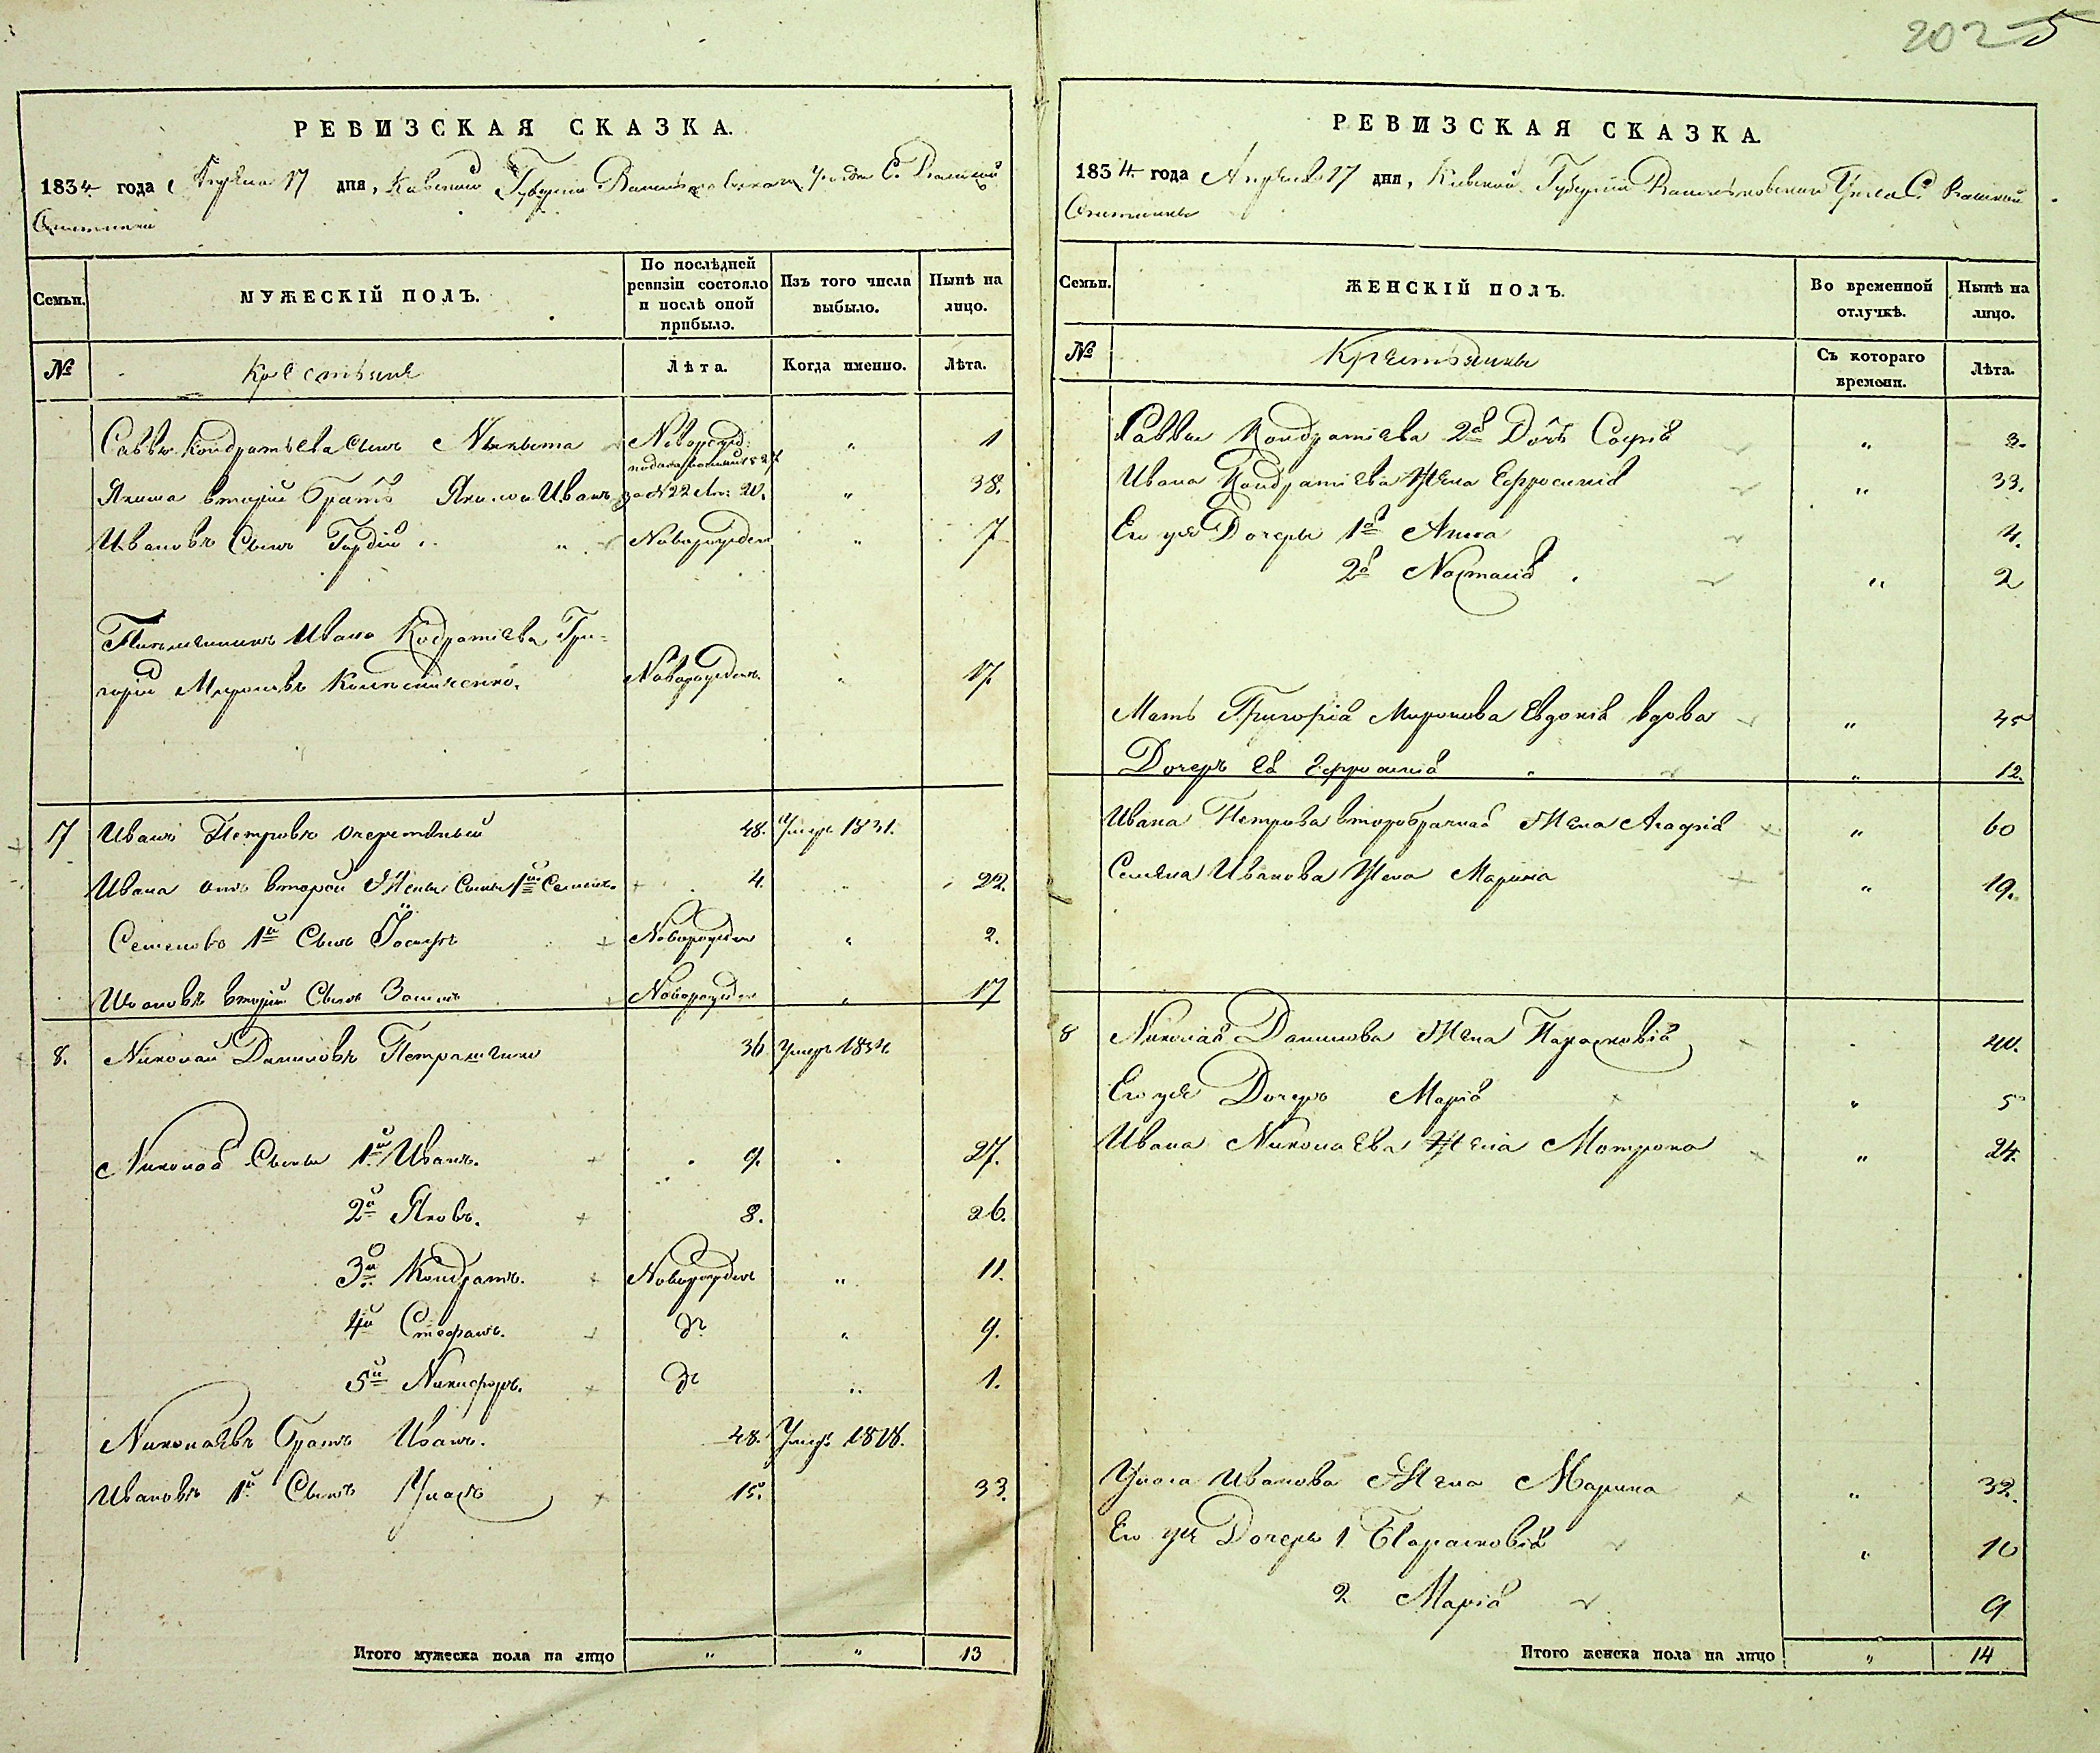 2025
РЕВИЗСКАЯ СКАЗКА.
1834 года Апреля 17 дня, Киевской Губернии Васильковского уезда С.
МУЖЕСКІЙ ПОЛЪ.
Семьи.
По послѣдней ревизіи состояло и послѣ оной прибыло.
Изъ того числа выбыло.
Нынѣ на лицо.
№
Крестьяне
Лѣта.
Когда именно.
Лѣта.
Саввы Кондратьева Сынъ Никита Новорожд: " 1
второй Братъ Иванъ 22 20. " 38.
Ивановъ Сынъ Гордій " Новорожден " 7
Племянникъ Ивана Кодратіева Гри-
горій Мироновъ Новорожденъ " 17.
17 Иванъ Петровъ Очеретяный 48. Умеръ 1831.
Ивана отъ второй Жены Сынъ 1й Семенъ 4. " 22.
Семеновъ 1й Сынъ Іосифъ Новорожден " 2.
Ивановъ вторій Сынъ Новорожден " 17
8. Николай Даниловъ Петрашенко 36 Умеръ 1834
Николая Сыны 1й Иванъ. 9. 27.
2й Яковъ. 8. 26.
3й Кондратъ. Новорожден " 11.
4й Стефанъ. до " 9.
5й Никифоръ. до " 1.
Николаевъ Братъ Иванъ. 48. Умеръ 1818.
Ивановъ 1й Сынъ Уласъ 15. 33.
Итого мужеска пола на лицо " " 13
РЕВИЗСКАЯ СКАЗКА.
1834 года Апреля 17 дня, Киевской Губерніи Васильковского Уезда С.
Семьи.
ЖЕНСКІЙ ПОЛЪ.
Во временной отлучкѣ.
Нынѣ на лицо.
№
Крестьянки
Съ котораго времени.
Лѣта.
Саввы Кондратіева 2я Дочь Софія " 3.
Ивана Кондратіева Жена Ефросинія " 33.
Его же Дочери 1я Анна 4.
2я Наталія. " 2
Мать Григорія Миронова Евдокія вдова " 45
Дочерь Ея Ефросинія " 12.
Ивана Петрова второбрачная Жена Агафія " 60
Семена Иванова Жена Марина " 19.
8 Николая Данилова Жена Парасковія
Его же Дочерь Марія " 5
Ивана Николаева Жена Мотрона " 24.
Уласа Иванова Жена Марина " 32.
Его же Дочери 1 Парасковія " 10
2 Марія 9
Итого женска пола на лицо " 14